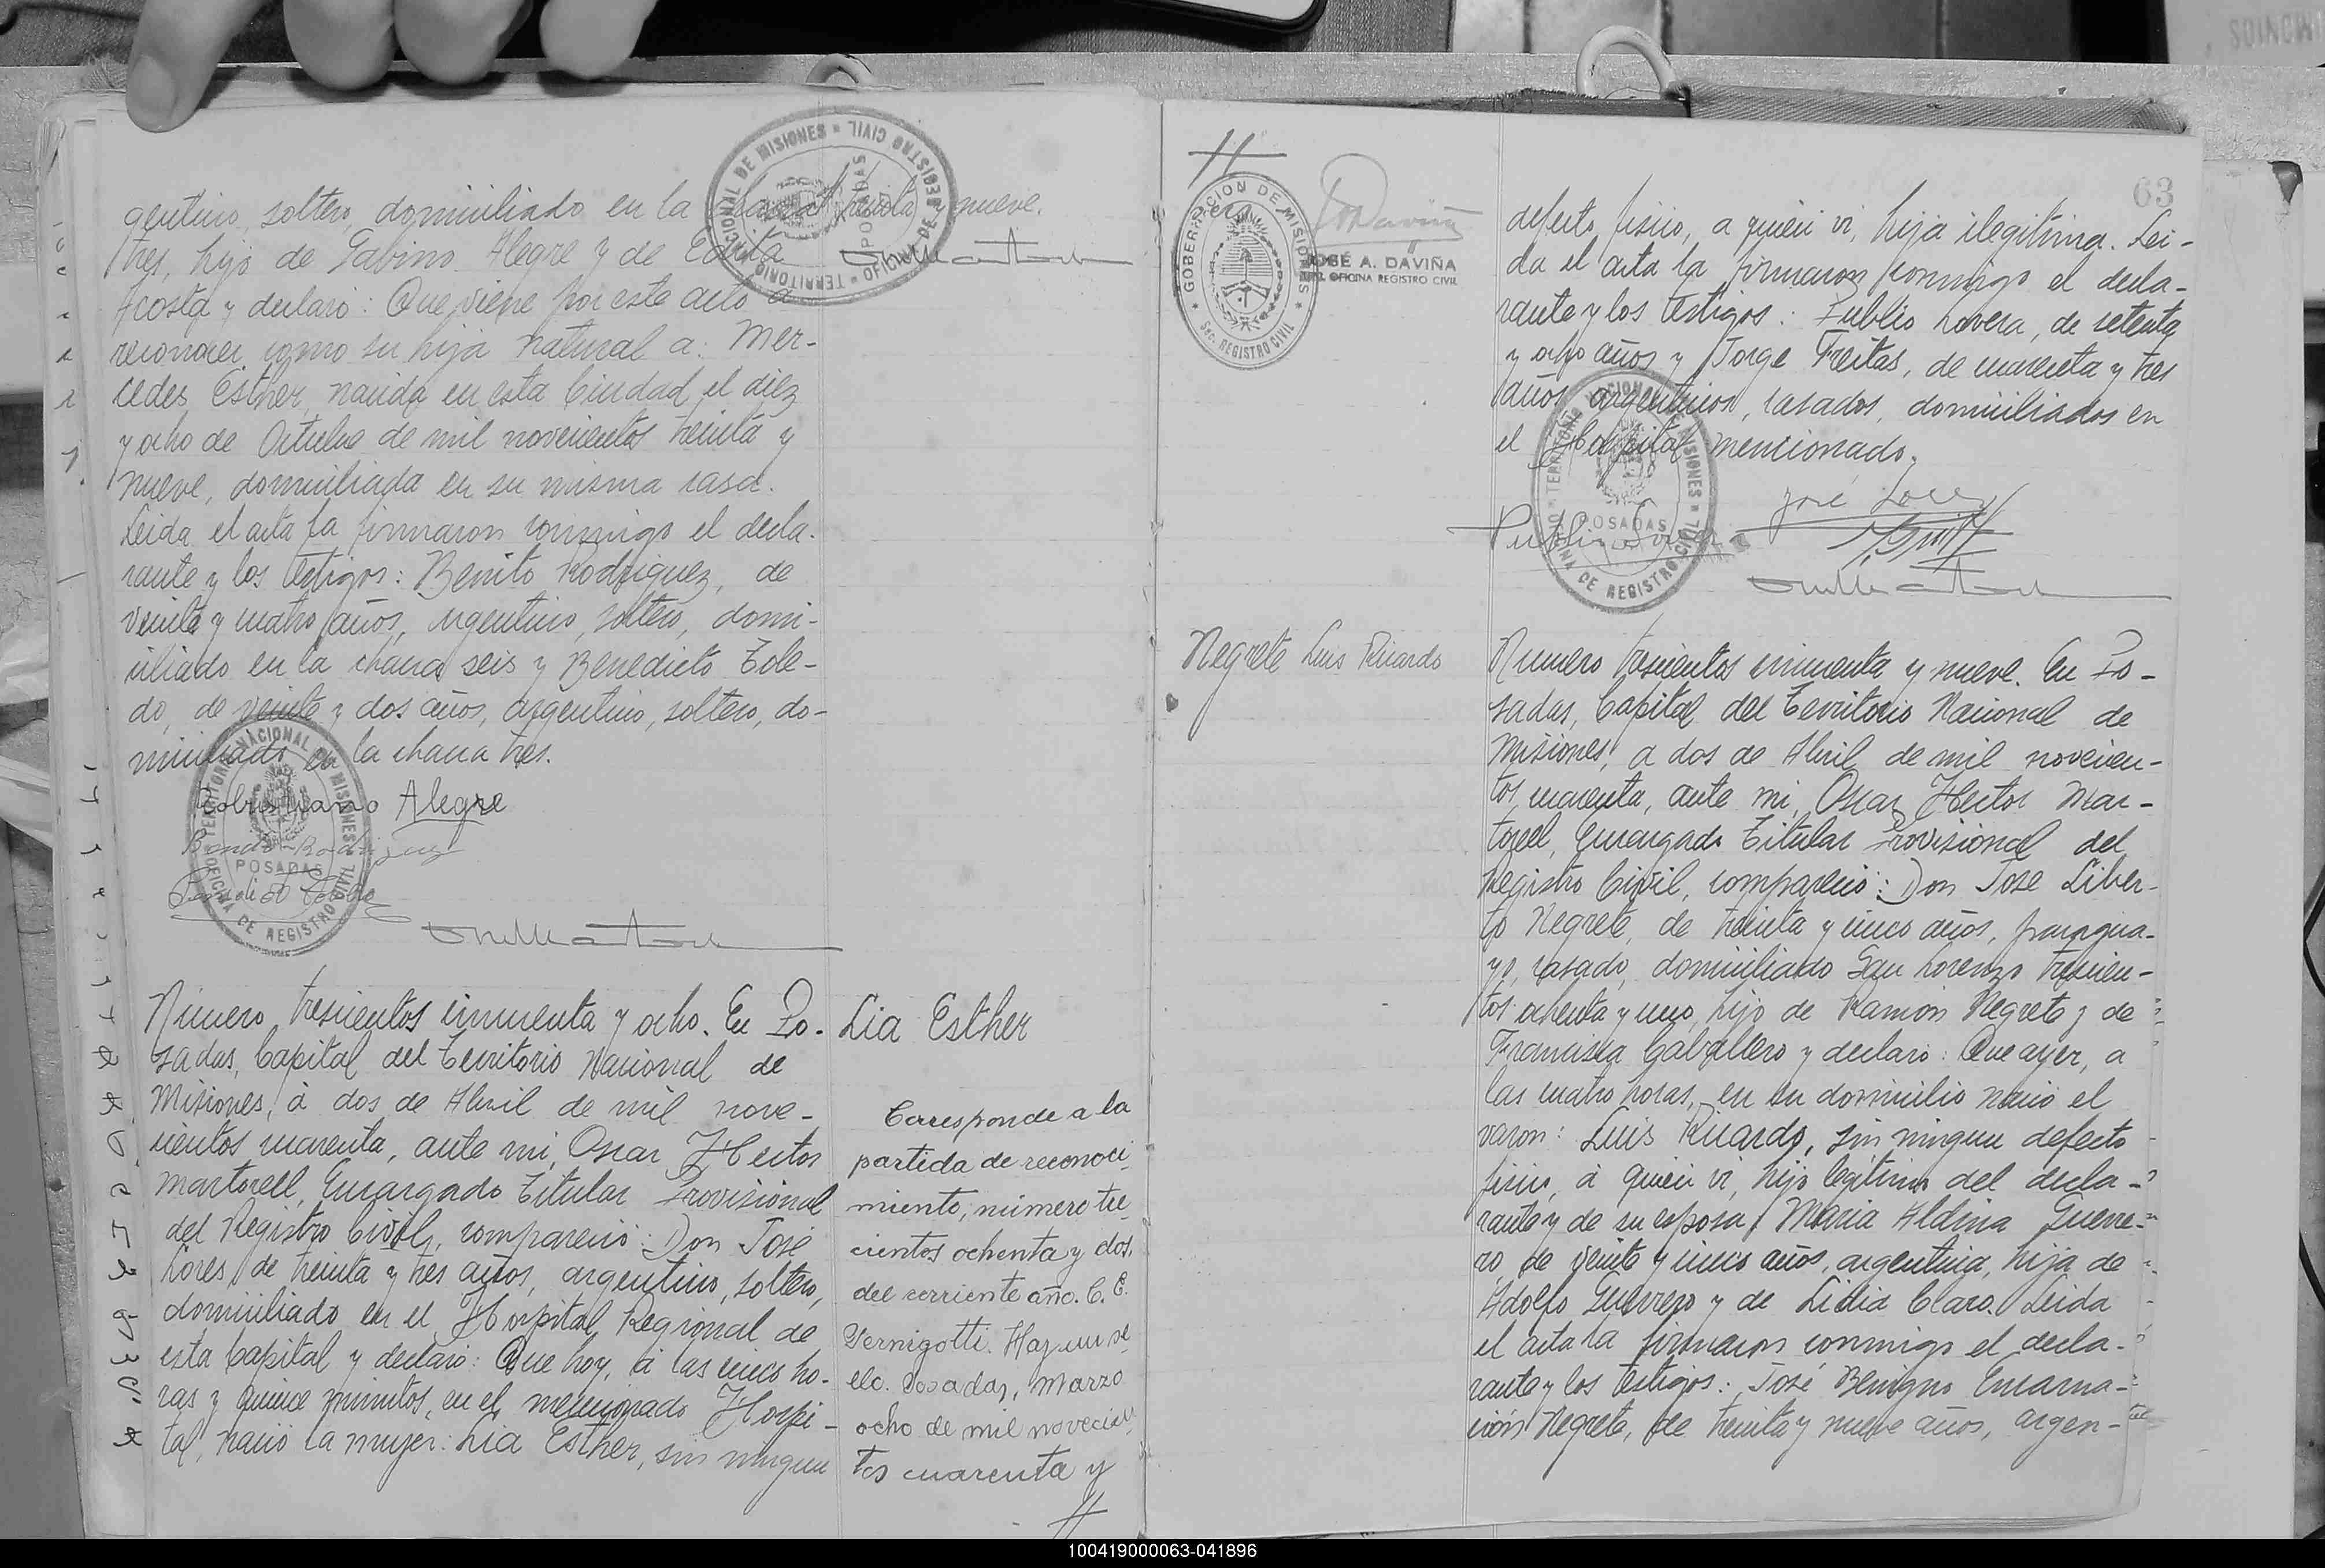 gentino, soltero, domiciliado en la
tres, hijo de Gabino Alegre y de
Acosta y declaró: Que viene por este acto a
reconocer como su hija natural a: Mer-
cedes Esther, nacida en esta Ciudad el diez
y ocho de Octubre de mil novecientos treinta y
nueve, domiciliada en su misma casa.
Leida el acta la firmaron conmigo el decla-
rante y los testigos: Benito Rodriguez, de
veinte y cuatro años, argentino, soltero, domi-
ciliado en la chacra seis y Benedicto Tole-
do, de veinte y dos años, argentino, soltero, do-
miciliado en la chacra tres.
Alegre
nueve.
TERRITORIO NACIONAL DE MISIONES
OFICINA DE REGISTRO CIVIL
POSADAS
Número trescientos cincuenta y ocho. En Po-
sadas, Capital del Territorio Nacional de
Misiones, a dos de Abril de mil nove-
cientos cuarenta, ante mi, Oscar Hector
Martorell, Encargado Titular Provisional
del Registro Civil, compareció: Don José
Lores, de treinta y tres años, argentino, soltero,
domiciliado en el Hospital Regional de
esta Capital y declaró: Que hoy, a las cinco ho-
ras y quince minutos, en el mencionado Hospi-
tal, nació la mujer: Lia Esther, sin ningun
Lia Esther
Corresponde a la
partida de reconoci-
miento, número tre-
cientos ochenta y dos,
del corriente año. C. E.
Vernigotti. Hay un se-
llo. Posadas, Marzo
ocho de mil novecien-
tos cuarenta y
//
//
GOBERNACION DE MISIONES
Sec. REGISTRO CIVIL
JOSÉ A. DAVIÑA
OFICINA REGISTRO CIVIL
63
defecto fisico, a quien vi, hija ilegitima. Lei-
da el acta la firmaron conmigo el decla-
rante y los testigos: Publio Lovera, de setenta
y ocho años y Jorge Freitas, de cuarenta y tres
años, argentinos, casados, domiciliados en
el Hospital mencionado.
José Lores
Negrete Luis Ricardo
Numero trescientos cincuenta y nueve. En Po-
sadas, Capital del Territorio Nacional de
Misiones, a dos de Abril de mil novecien-
tos cuarenta, ante mi, Oscar Hector Mar-
torell, Encargado Titular Provisional del
Registro Civil, compareció: Don José Liber-
to Negrete, de treinta y cinco años, paragua-
yo, casado, domiciliado San Lorenzo trescien-
tos ochenta y uno, hijo de Ramón Negrete y de
Francisca Caballero y declaró: Que ayer, a
las cuatro horas, en su domicilio nació el
varon: Luis Ricardo, sin ningun defecto
fisico, a quien vi, hijo legitimo del decla-
rante y de su esposa Maria Aldina Guerre-
ro, de veinte y cinco años, argentina, hija de
Adolfo Guerrero y de Lidia Claro. Leida
el acta la firmaron conmigo el decla-
rante y los testigos: José Benigno Encarna-
ción Negrete, de treinta y nueve años, argen-
100419000063-041896